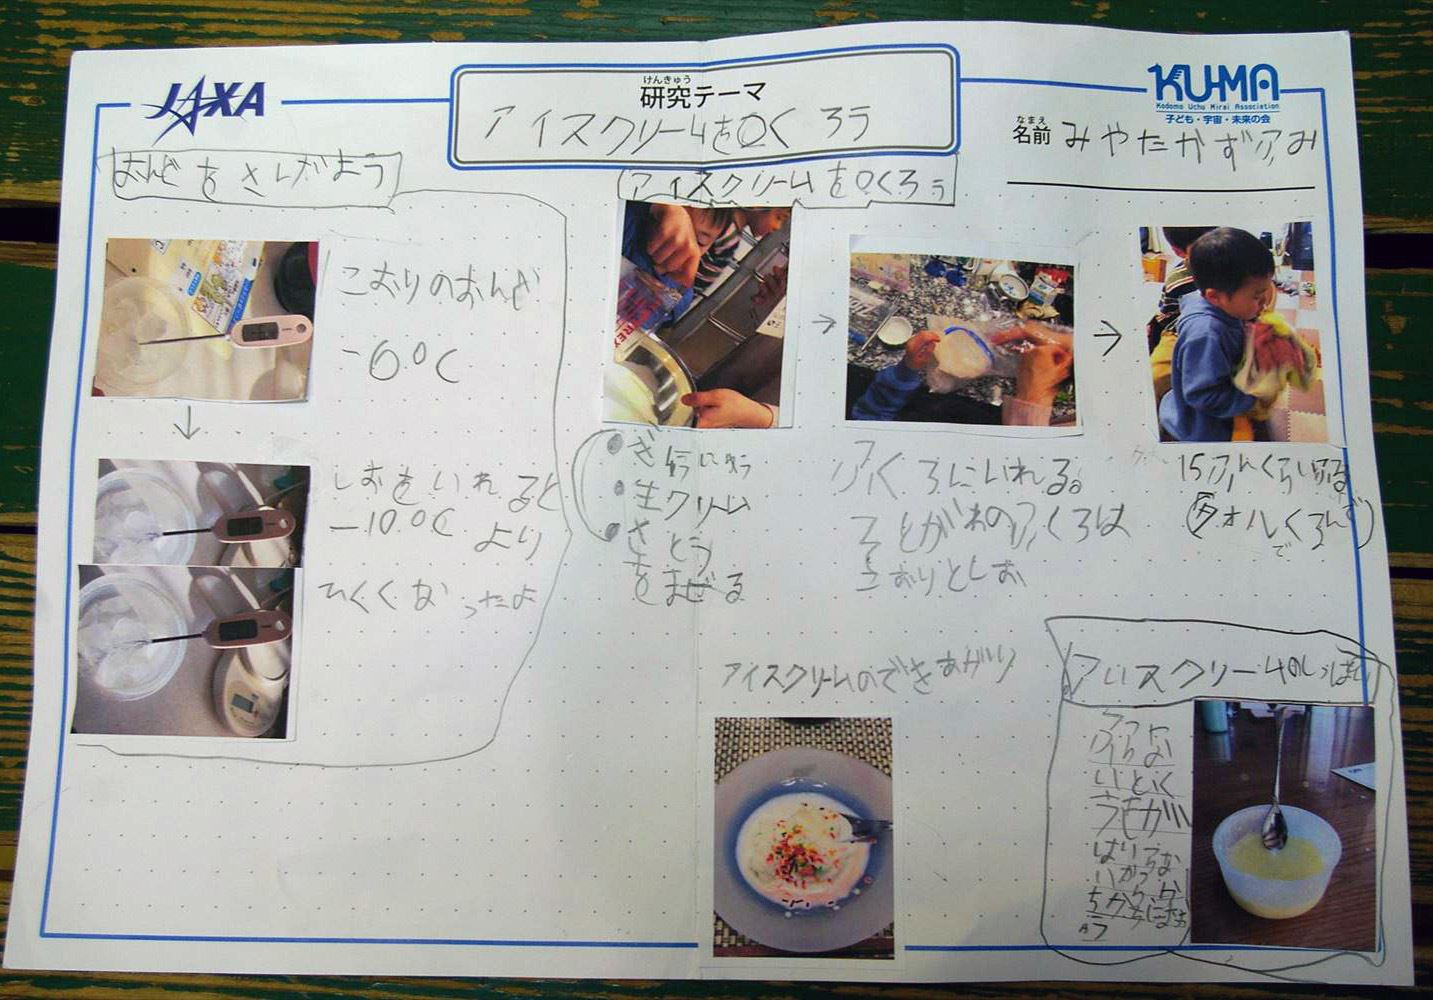 JAXA
けんきゅう
研究テーマ
アイスクリームをつくろう
KU-MA
Kodomo Uchu Mirai Association
子ども・宇宙・未来の会
なまえ
名前 みやたかずふみ
おんどをさげよう
こおりのおんど
-6℃
↓
しおをいれると
-10℃より
ひくくなったよ
アイスクリームをつくろう
→
→
ぎゅうにゅう
生クリーム
さとう
をまぜる
ふくろにいれる。
そとがわのふくろは
こおりとしお
15ふんくらい
(タオルでくるんで)
アイスクリームのできあがり
アイスクリームのしっぱい